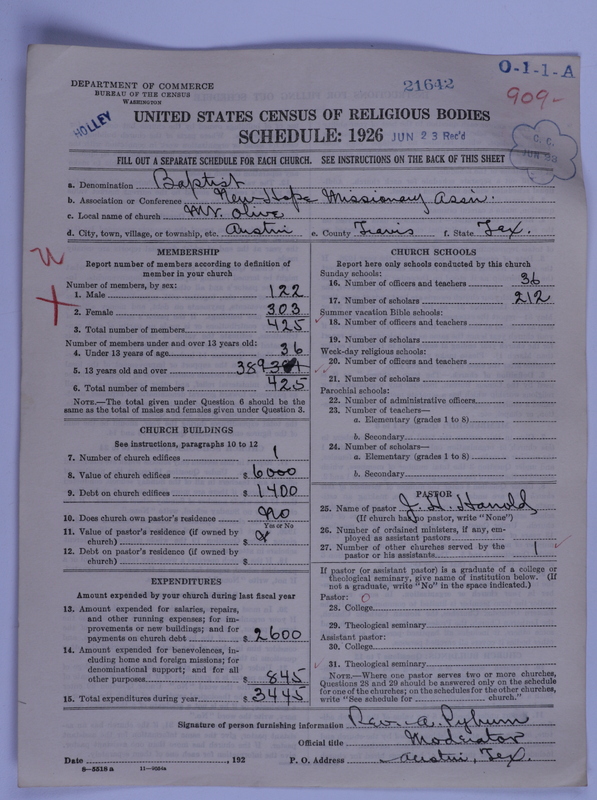 O-1-1-A
DEPARTMENT OF COMMERCE
BUREAU OF THE CENSUS
WASHINGTON
21642
909-
HOLLEY
UNITED STATES CENSUS OF RELIGIOUS BODIES
SCHEDULE: 1926 JUN 23 Rec'd
C. C.
FILL OUT A SEPARATE SCHEDULE FOR EACH CHURCH. SEE INSTRUCTIONS ON THE BACK OF THIS SHEET
a. Denomination Baptist
b. Association or Conference New Hope Missionary Assin.
c. Local name of church Mt. Olive
d. City, town, village, or township, etc. Austin e. County Travis f. State Tex.
MEMBERSHIP
Report number of members according to definition of
member in your church
Number of members, by sex:
1. Male 122
2. Female 303
3. Total number of members 425
Number of members under and over 13 years old:
4. Under 13 years of age 36
5. 13 years old and over 389
6. Total number of members 425
NOTE.—The total given under Question 6 should be
the same as the total of males and females given under Question 3.
CHURCH BUILDINGS
See instructions, paragraphs 10 to 12
7. Number of church edifices 1
8. Value of church edifices $ 6000
9. Debt on church edifices $ 1400
10. Does church own pastor's residence No
Yes or No
11. Value of pastor's residence (if owned by
church) $
12. Debt on pastor's residence (if owned by
church) $
EXPENDITURES
Amount expended by your church during last fiscal year
13. Amount expended for salaries, repairs,
and other running expenses; for im-
provements or new buildings; and for
payments on church debt $ 2600
14. Amount expended for benevolences, in-
cluding home and foreign missions; for
denominational support; and for all
other purposes $ 845
15. Total expenditures during year $ 3445
CHURCH SCHOOLS
Report here only schools conducted by this church
Sunday schools:
16. Number of officers and teachers 36
17. Number of scholars 212
Summer vacation Bible schools:
18. Number of officers and teachers
19. Number of scholars
Week-day religious schools:
20. Number of officers and teachers
21. Number of scholars
Parochial schools:
22. Number of administrative officers
23. Number of teachers—
a. Elementary (grades 1 to 8)
b. Secondary
24. Number of scholars—
a. Elementary (grades 1 to 8)
b. Secondary
PASTOR
25. Name of pastor J. H. Harrold
(If church has no pastor, write "None")
26. Number of ordained ministers, if any, em-
ployed as assistant pastors
27. Number of other churches served by the
pastor or his assistants 1
If pastor (or assistant pastor) is a graduate of a college or
theological seminary, give name of institution below. (If
not a graduate, write "No" in the space indicated.)
Pastor: 0
28. College
29. Theological seminary
Assistant pastor:
30. College
31. Theological seminary
NOTE.—Where one pastor serves two or more churches,
Questions 28 and 29 should be answered only on the schedule
for one of the churches; on the schedules for the other churches,
write "See schedule for church."
Signature of person furnishing information Rev. A. Pyburn
Official title Moderator
Date , 192 P. O. Address Austin, Tex.
8—5518a 11—9054a